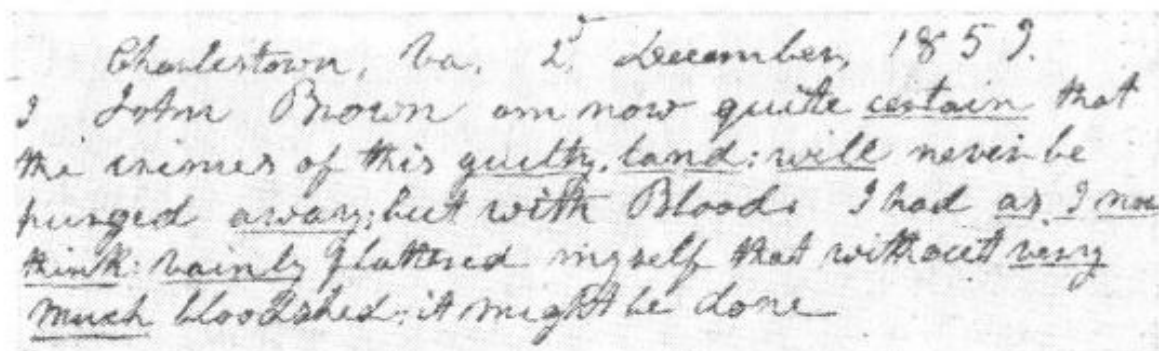 Charlestown, Va, 2d, December, 1859.
I John Brown am now quite certain that
the crimes of this guilty, land: will never be
purged away; but with Blood. I had as I now
think: vainly flattered myself that without very
much bloodshed; it might be done